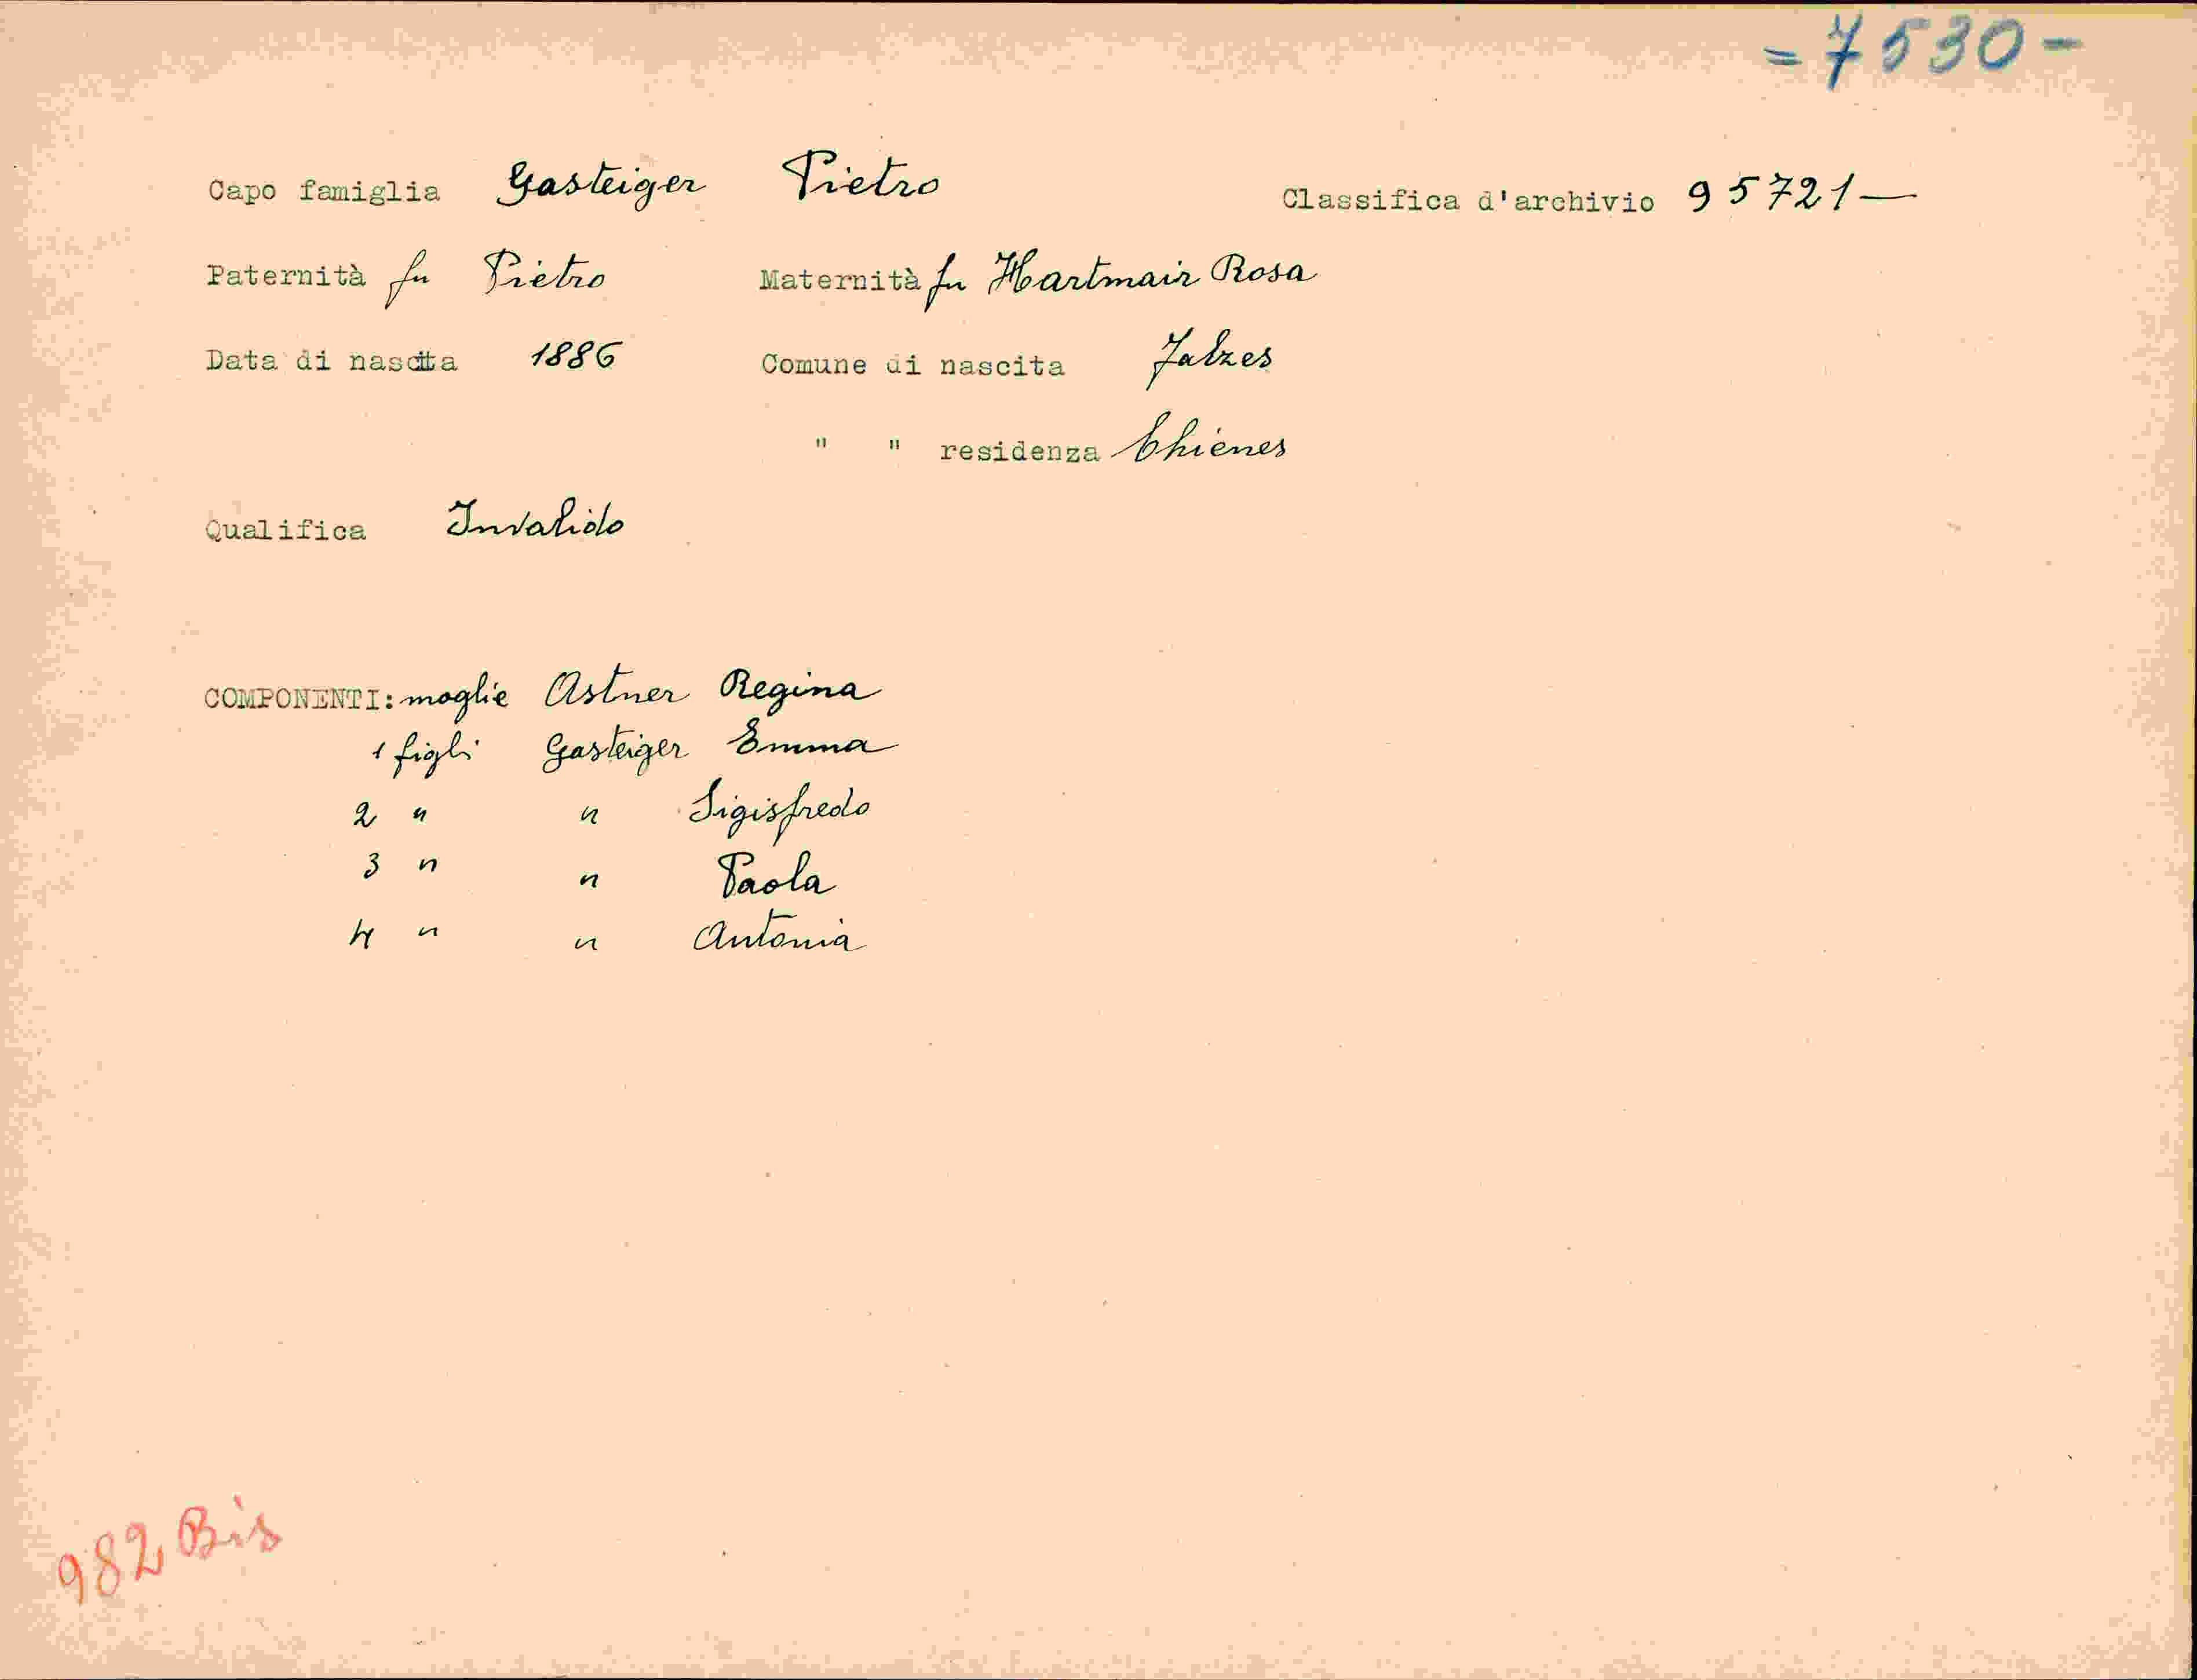 = 7530 -
Capo famiglia Gasteiger Pietro Classifica d'archivio 95721 —
Paternità fu Pietro Maternità fu Hartmair Rosa
Data di nascita 1886 Comune di nascita Falzes
" " residenza Chienes
Qualifica Invalido
COMPONENTI: moglie Astner Regina
1 figli Gasteiger Emma
2 " " Sigisfredo
3 " " Paola
4 " " Antonia
982 Bis